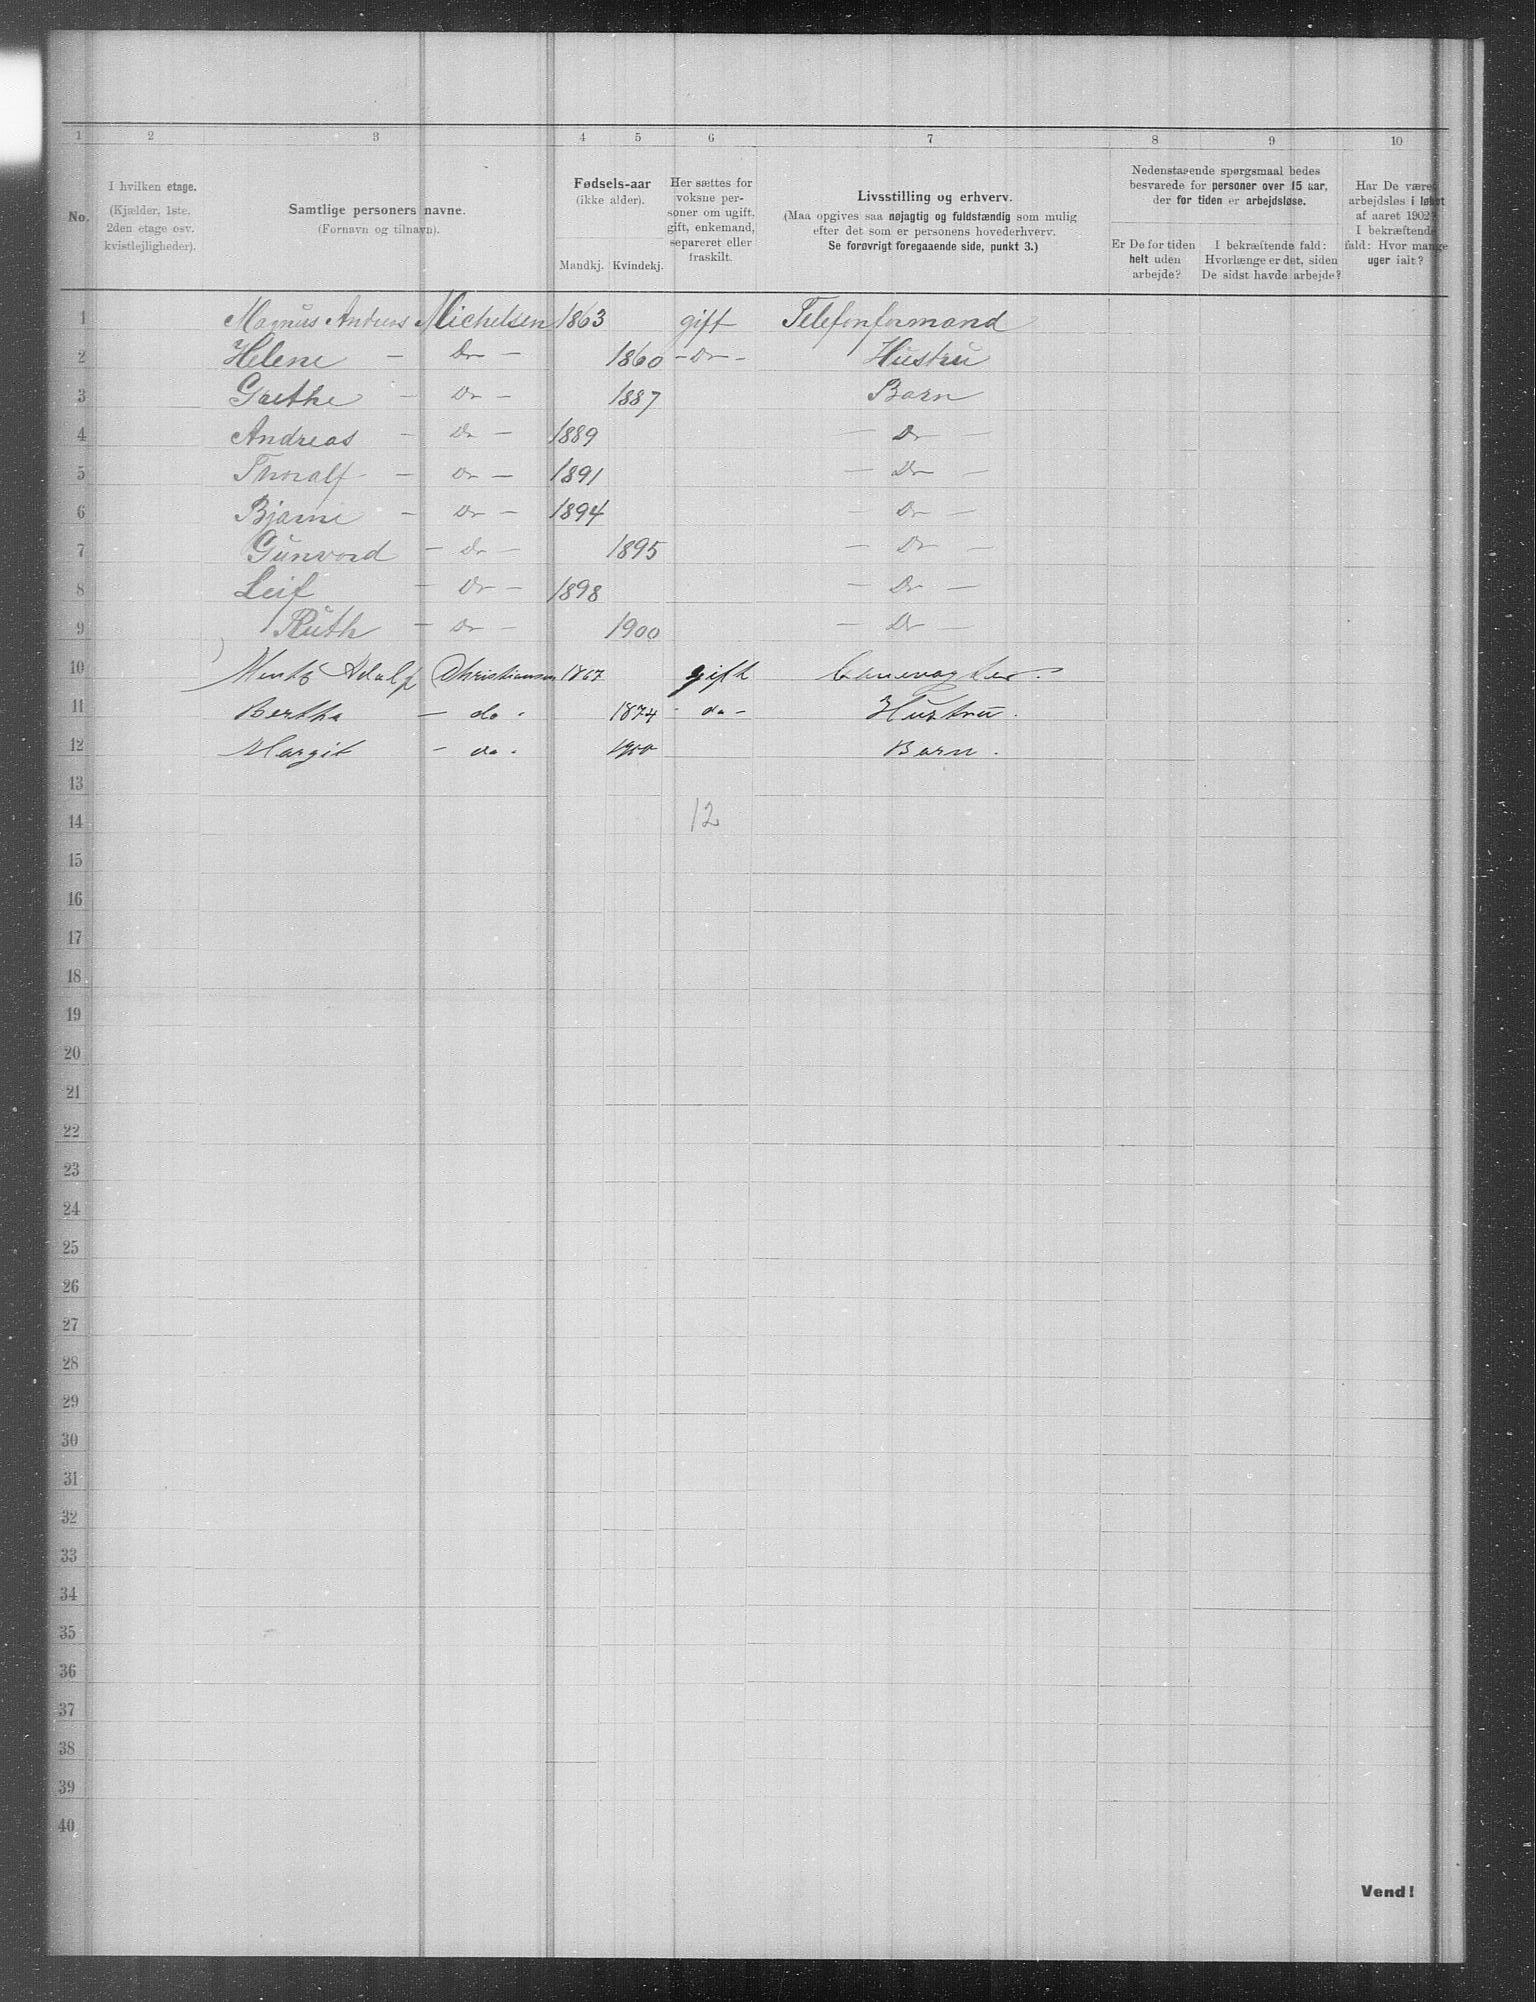 1 2 3 4 5 6 7 8 9 10
No.
I hvilken etage.
(Kjælder, 1ste.
2den etage osv.
kvistlejligheder).
Samtlige personers navne.
(Fornavn og tilnavn).
Fødsels-aar
(ikke alder).
Mandkj. Kvindekj.
Her sættes for
voksne per-
soner om ugift,
gift, enkemand,
separeret eller
fraskilt.
Livsstilling og erhverv.
(Maa opgives saa nøjagtig og fuldstændig som mulig
efter det som er personens hovederhverv.
Se forøvrigt foregaaende side, punkt 3.)
Nedenstaaende spørgsmaal bedes
besvarede for personer over 15 aar,
der for tiden er arbejdsløse.
Er De for tiden
helt uden
arbejde?
I bekræftende fald:
Hvorlænge er det, siden
De sidst havde arbejde?
Har De været
arbejdsløs i løbet
af aaret 1902?
I bekræftende
fald: Hvor mange
uger ialt?
1 Magnus Andreas Michelsen 1863 gift Telefonformand
2 Helene - Do - 1860 - Do - Hustru
3 Grethe - Do - 1887 Barn
4 Andreas - Do - 1889 - Do -
5 Thoralf - Do - 1891 - Do -
6 Bjarne - Do - 1894 - Do -
7 Gunvord - Do - 1895 - Do -
8 Leif - Do - 1898 - Do -
9 Ruth - Do - 1900 - Do -
10 Mentz Adolf Christiansen 1867 gift
11 Bertha - do - 1874 - do - Hustru.
12 Margit - do - 1900 Barn.
13
14 12
15
16
17
18
19
20
21
22
23
24
25
26
27
28
29
30
31
32
33
34
35
36
37
38
39
40
Vend!